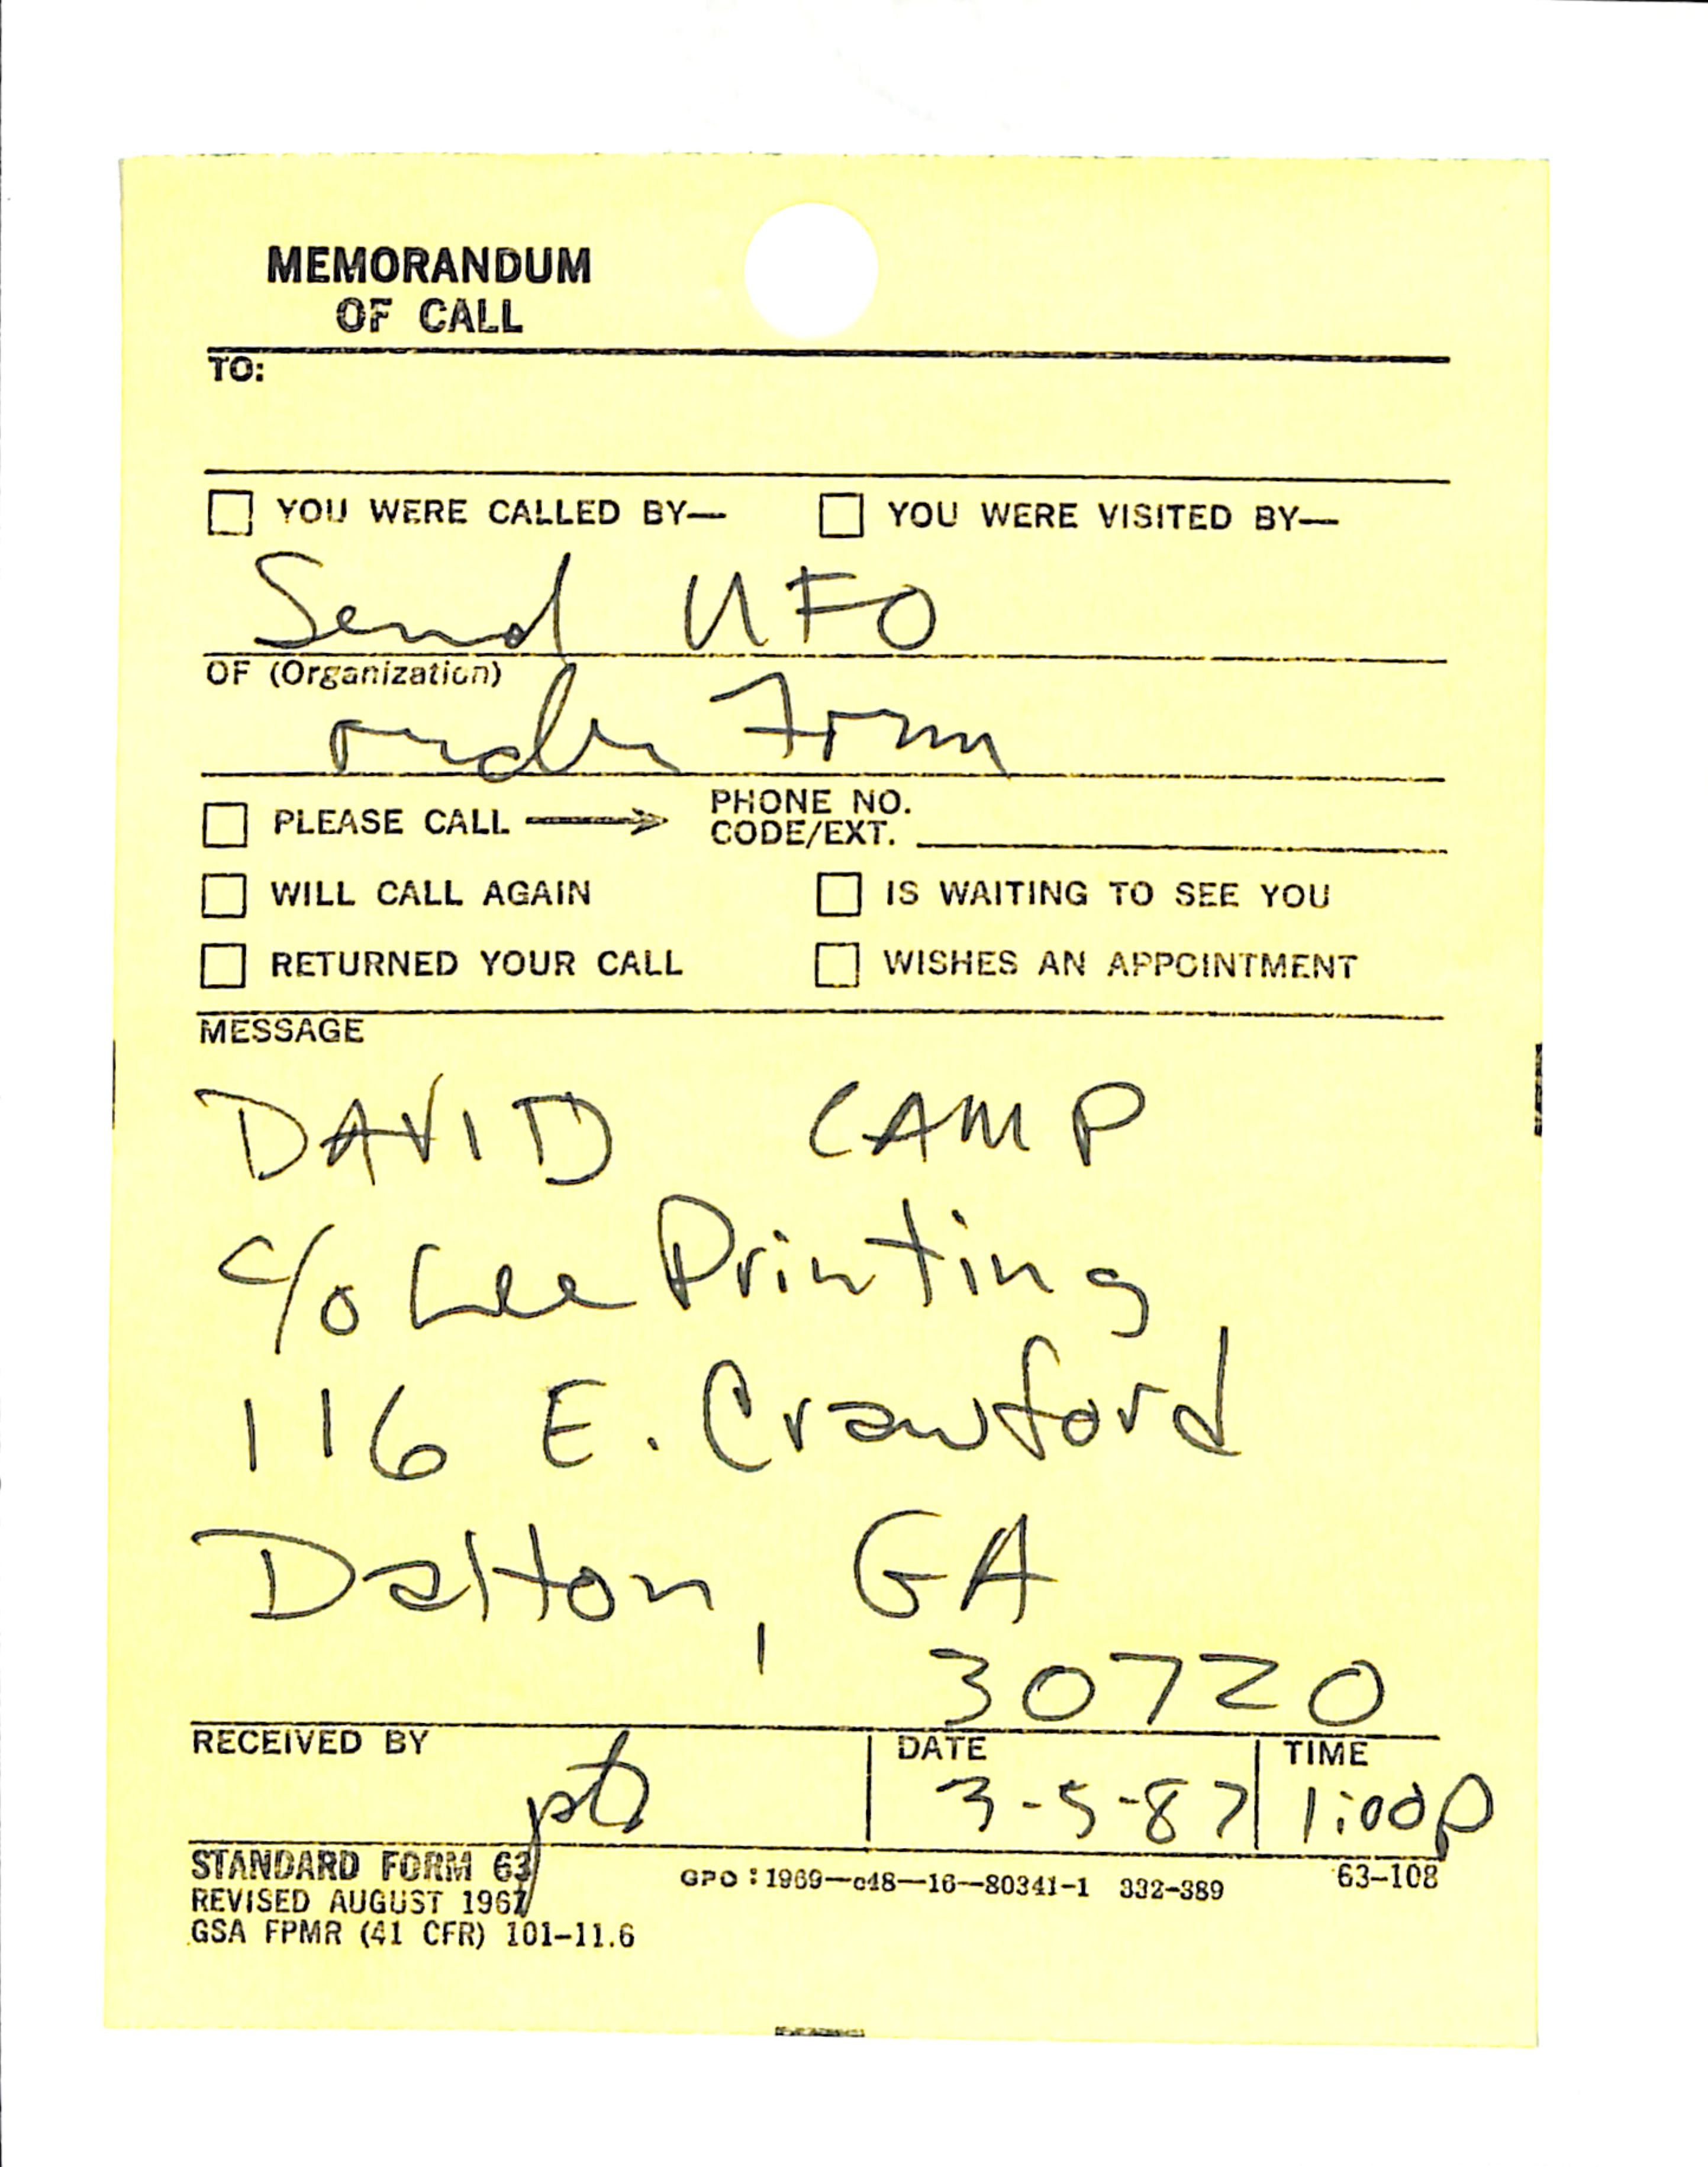 MEMORANDUM
OF CALL
TO:
YOU WERE CALLED BY— YOU WERE VISITED BY—
Send UFO
OF (Organization)
order Form
PLEASE CALL → PHONE NO.
CODE/EXT.
WILL CALL AGAIN IS WAITING TO SEE YOU
RETURNED YOUR CALL WISHES AN APPOINTMENT
MESSAGE
DAVID CAMP
c/o Lee Printing
116 E. Crawford
Dalton, GA
30720
RECEIVED BY DATE TIME
3-5-87 1:00p
STANDARD FORM 63 GPO : 1969—c48—16—80341-1 332-389 63-108
REVISED AUGUST 1967
GSA FPMR (41 CFR) 101-11.6